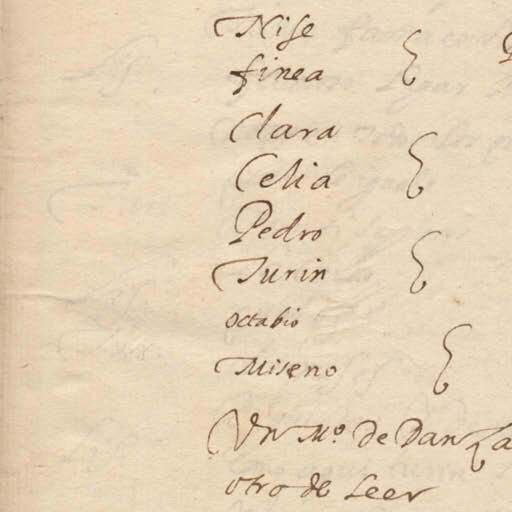 Nise
finea
Clara
Celia
Pedro
Turin
octabio
Miseno
Vn Mº. de Danza
otro de leer